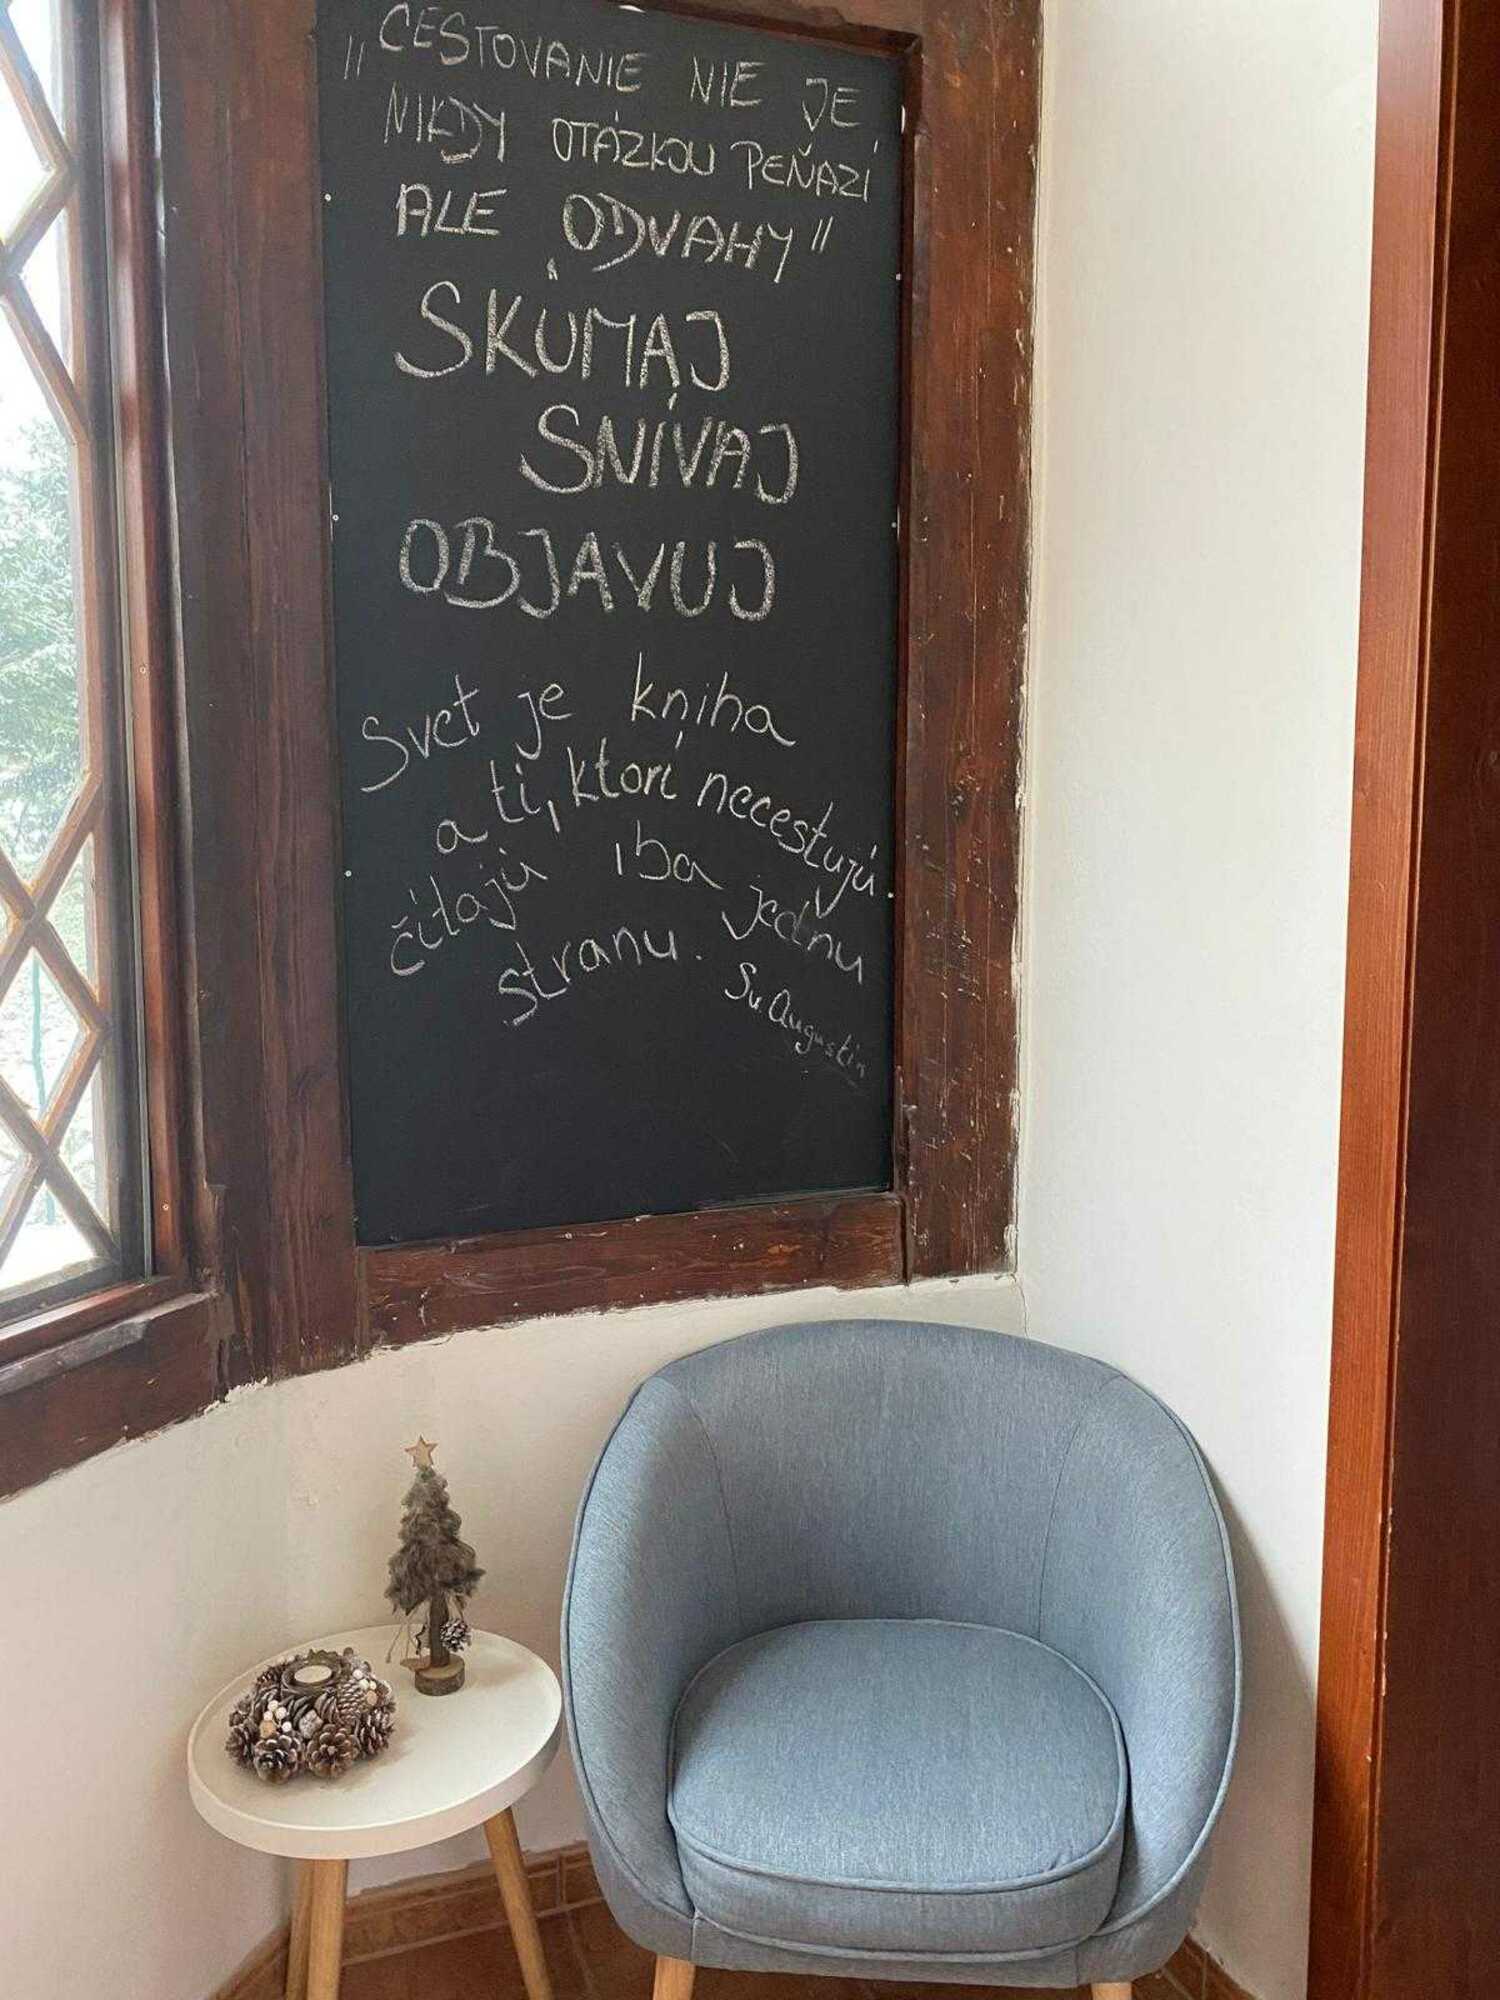 „CESTOVANIE NIE JE
NIKDY OTÁZKOU PEŇAZÍ
ALE ODVAHY"
SKÚMAJ
SNÍVAJ
OBJAVUJ
Svet je kniha
a tí, ktorí necestujú
čítajú iba jednu
stranu.
Sv. Augustín